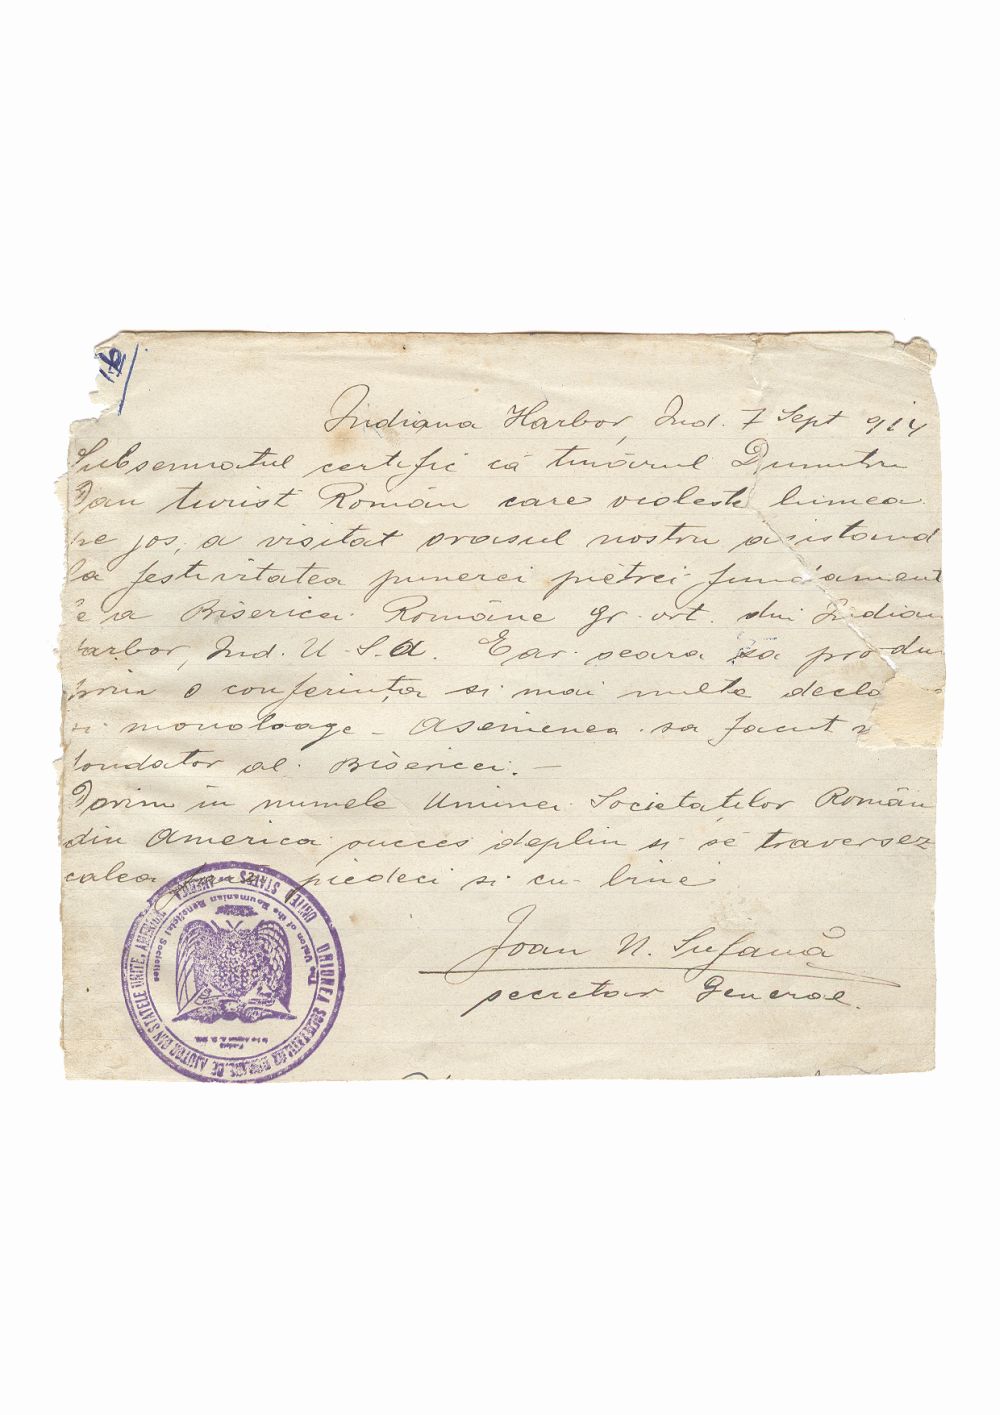 16
Indiana Harbor, Ind. 7 Sept 914
Subsemnatul certific că tinărul Dumitru
Dan turist Român care violeste lumea
pe jos, a visitat orasul nostru asistand
la festivitatea punerei pietrei fundament
a Bisericei Române gr. ort. din Indian
arbor, Ind. U.S.A. Ear seara sa produ
prin o conferința si mai multe decla
si monoloage - Asemenea sa facut
fondator al Bisericei.-
Dorim in numele Uniunei Societaților Român
din America succes deplin si se traversez
calea piedeci si cu bine
Ioan N. Sufană
secretar General.
UNIUNEA SOCIETATILOR ROMANE DE AJUTOR DIN STATELE UNITE, AMERICA
Union of the Roumanian Beneficial Societies
UNITED STATES AMERICA